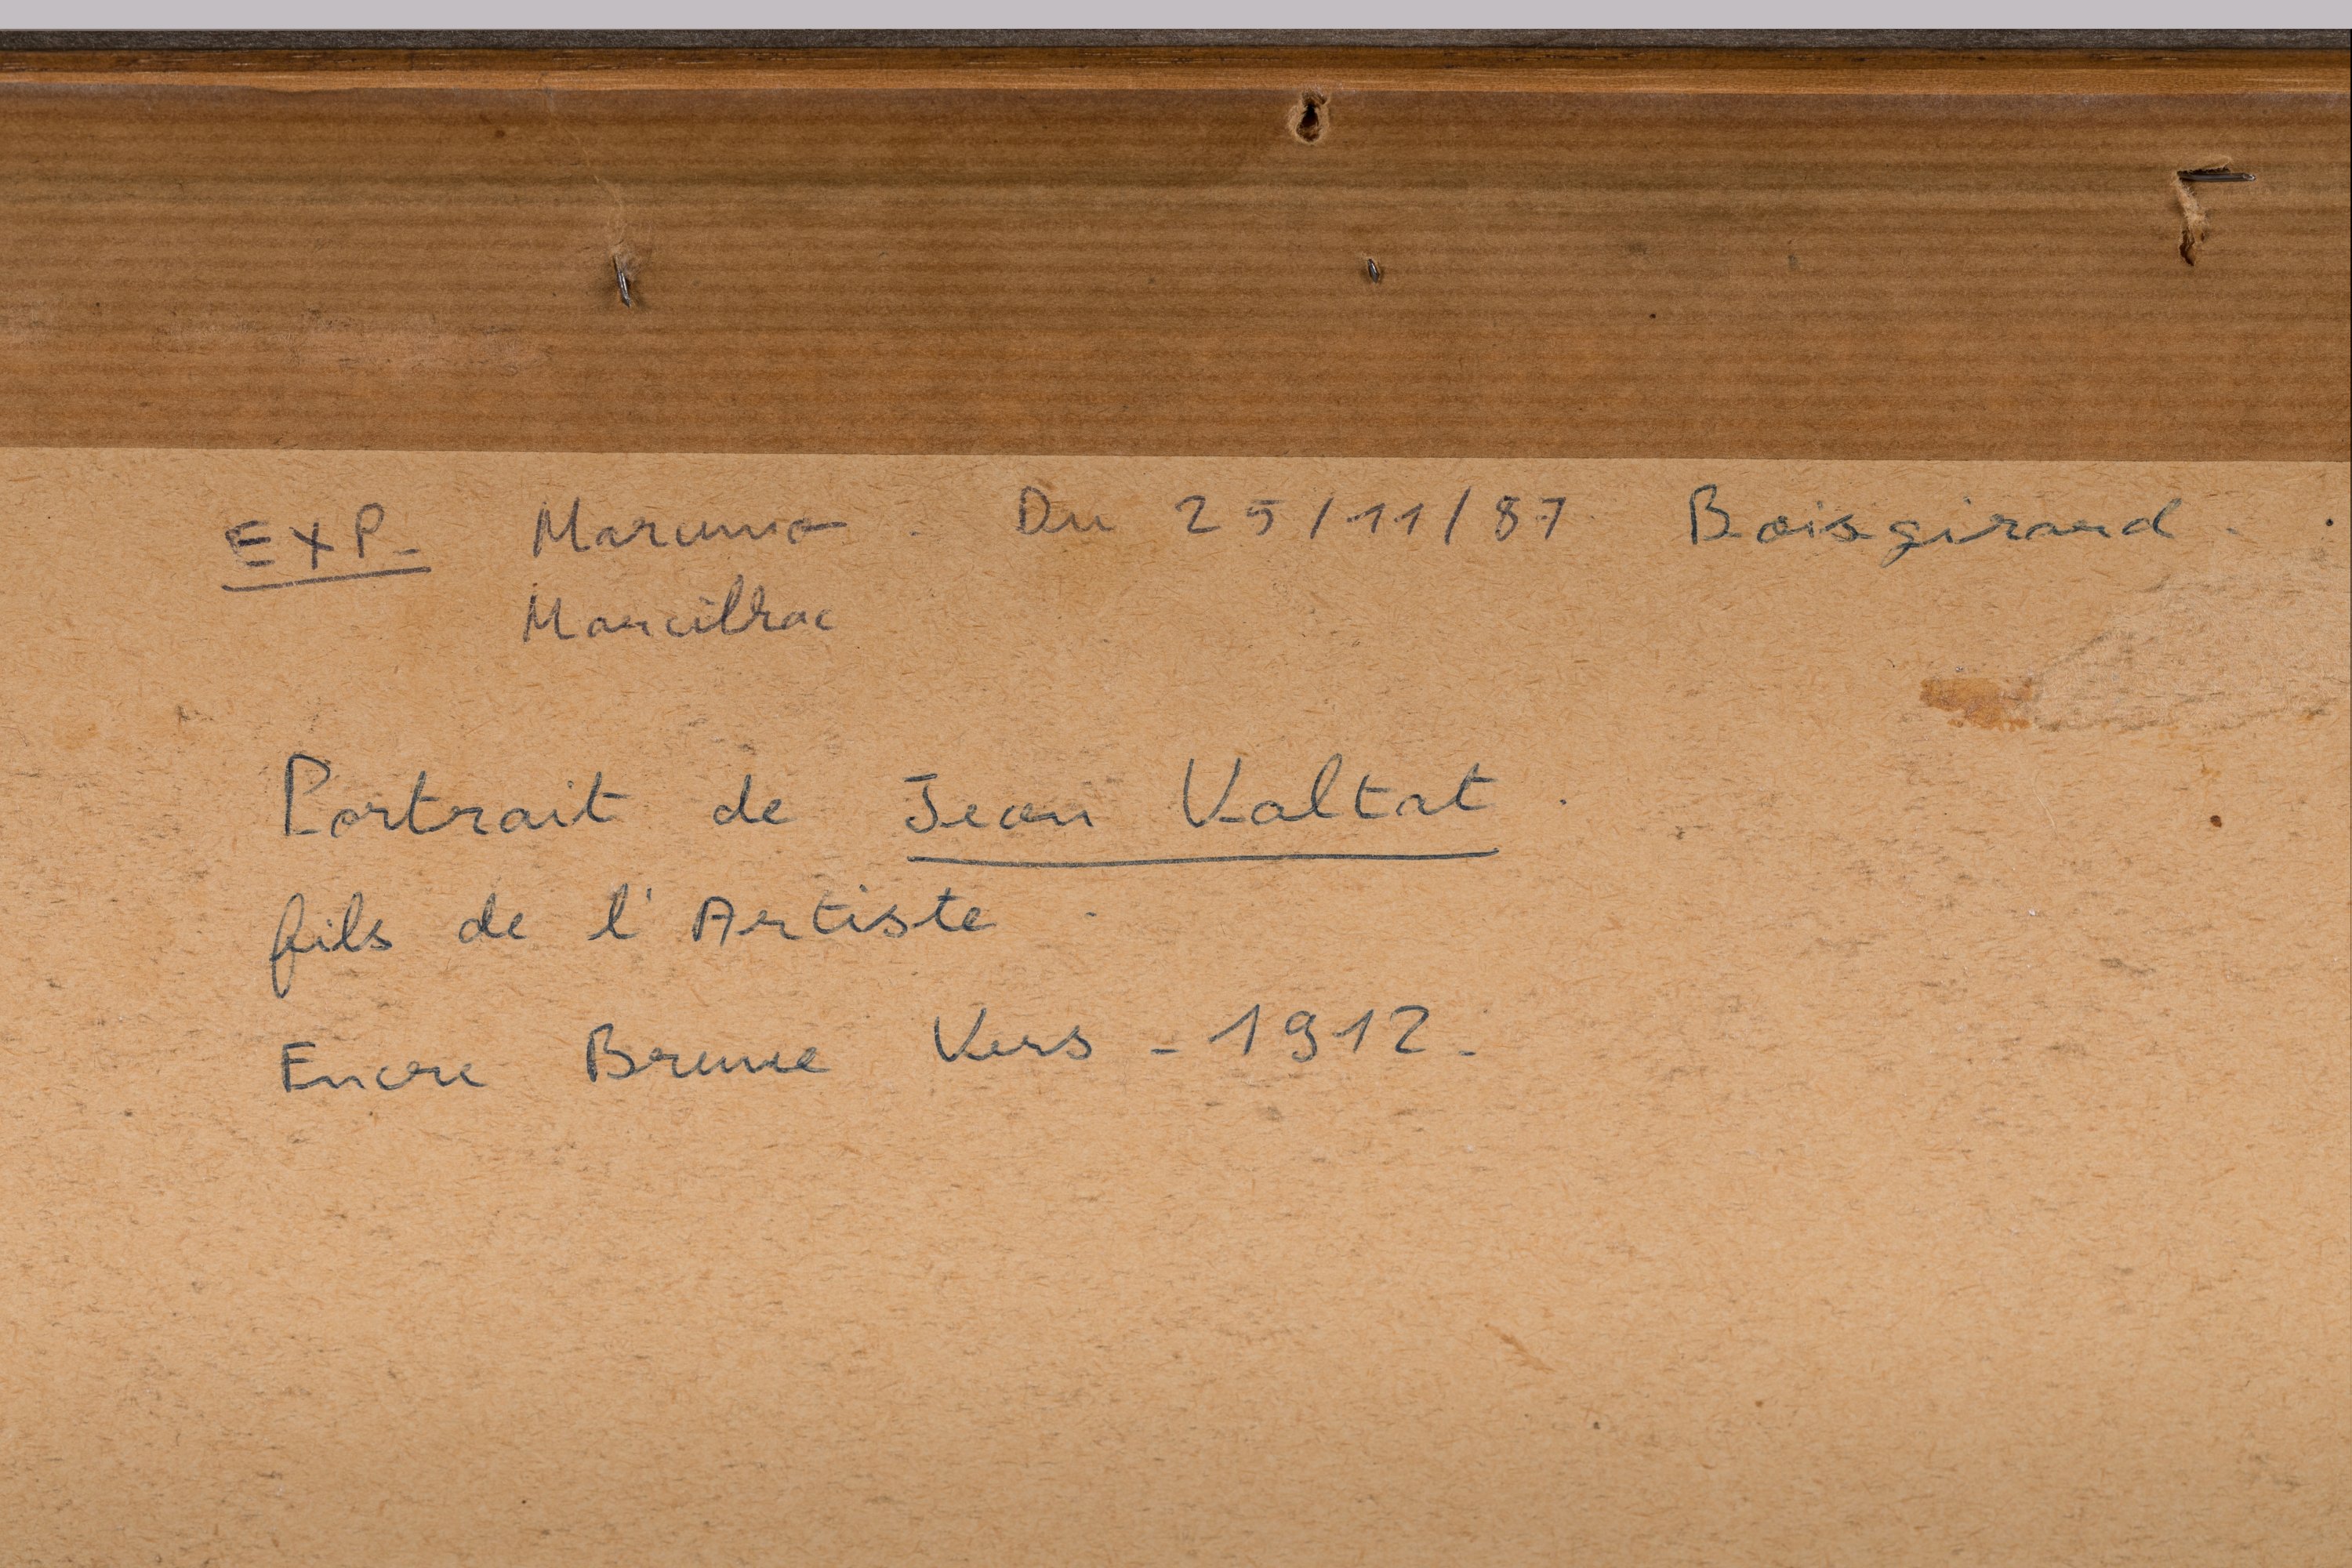 EXP. Marumo. Du 25/11/87 Boisgirard.
Portrait de Jean Valtat.
fils de l'Artiste.
Encre Brune Vers - 1912.